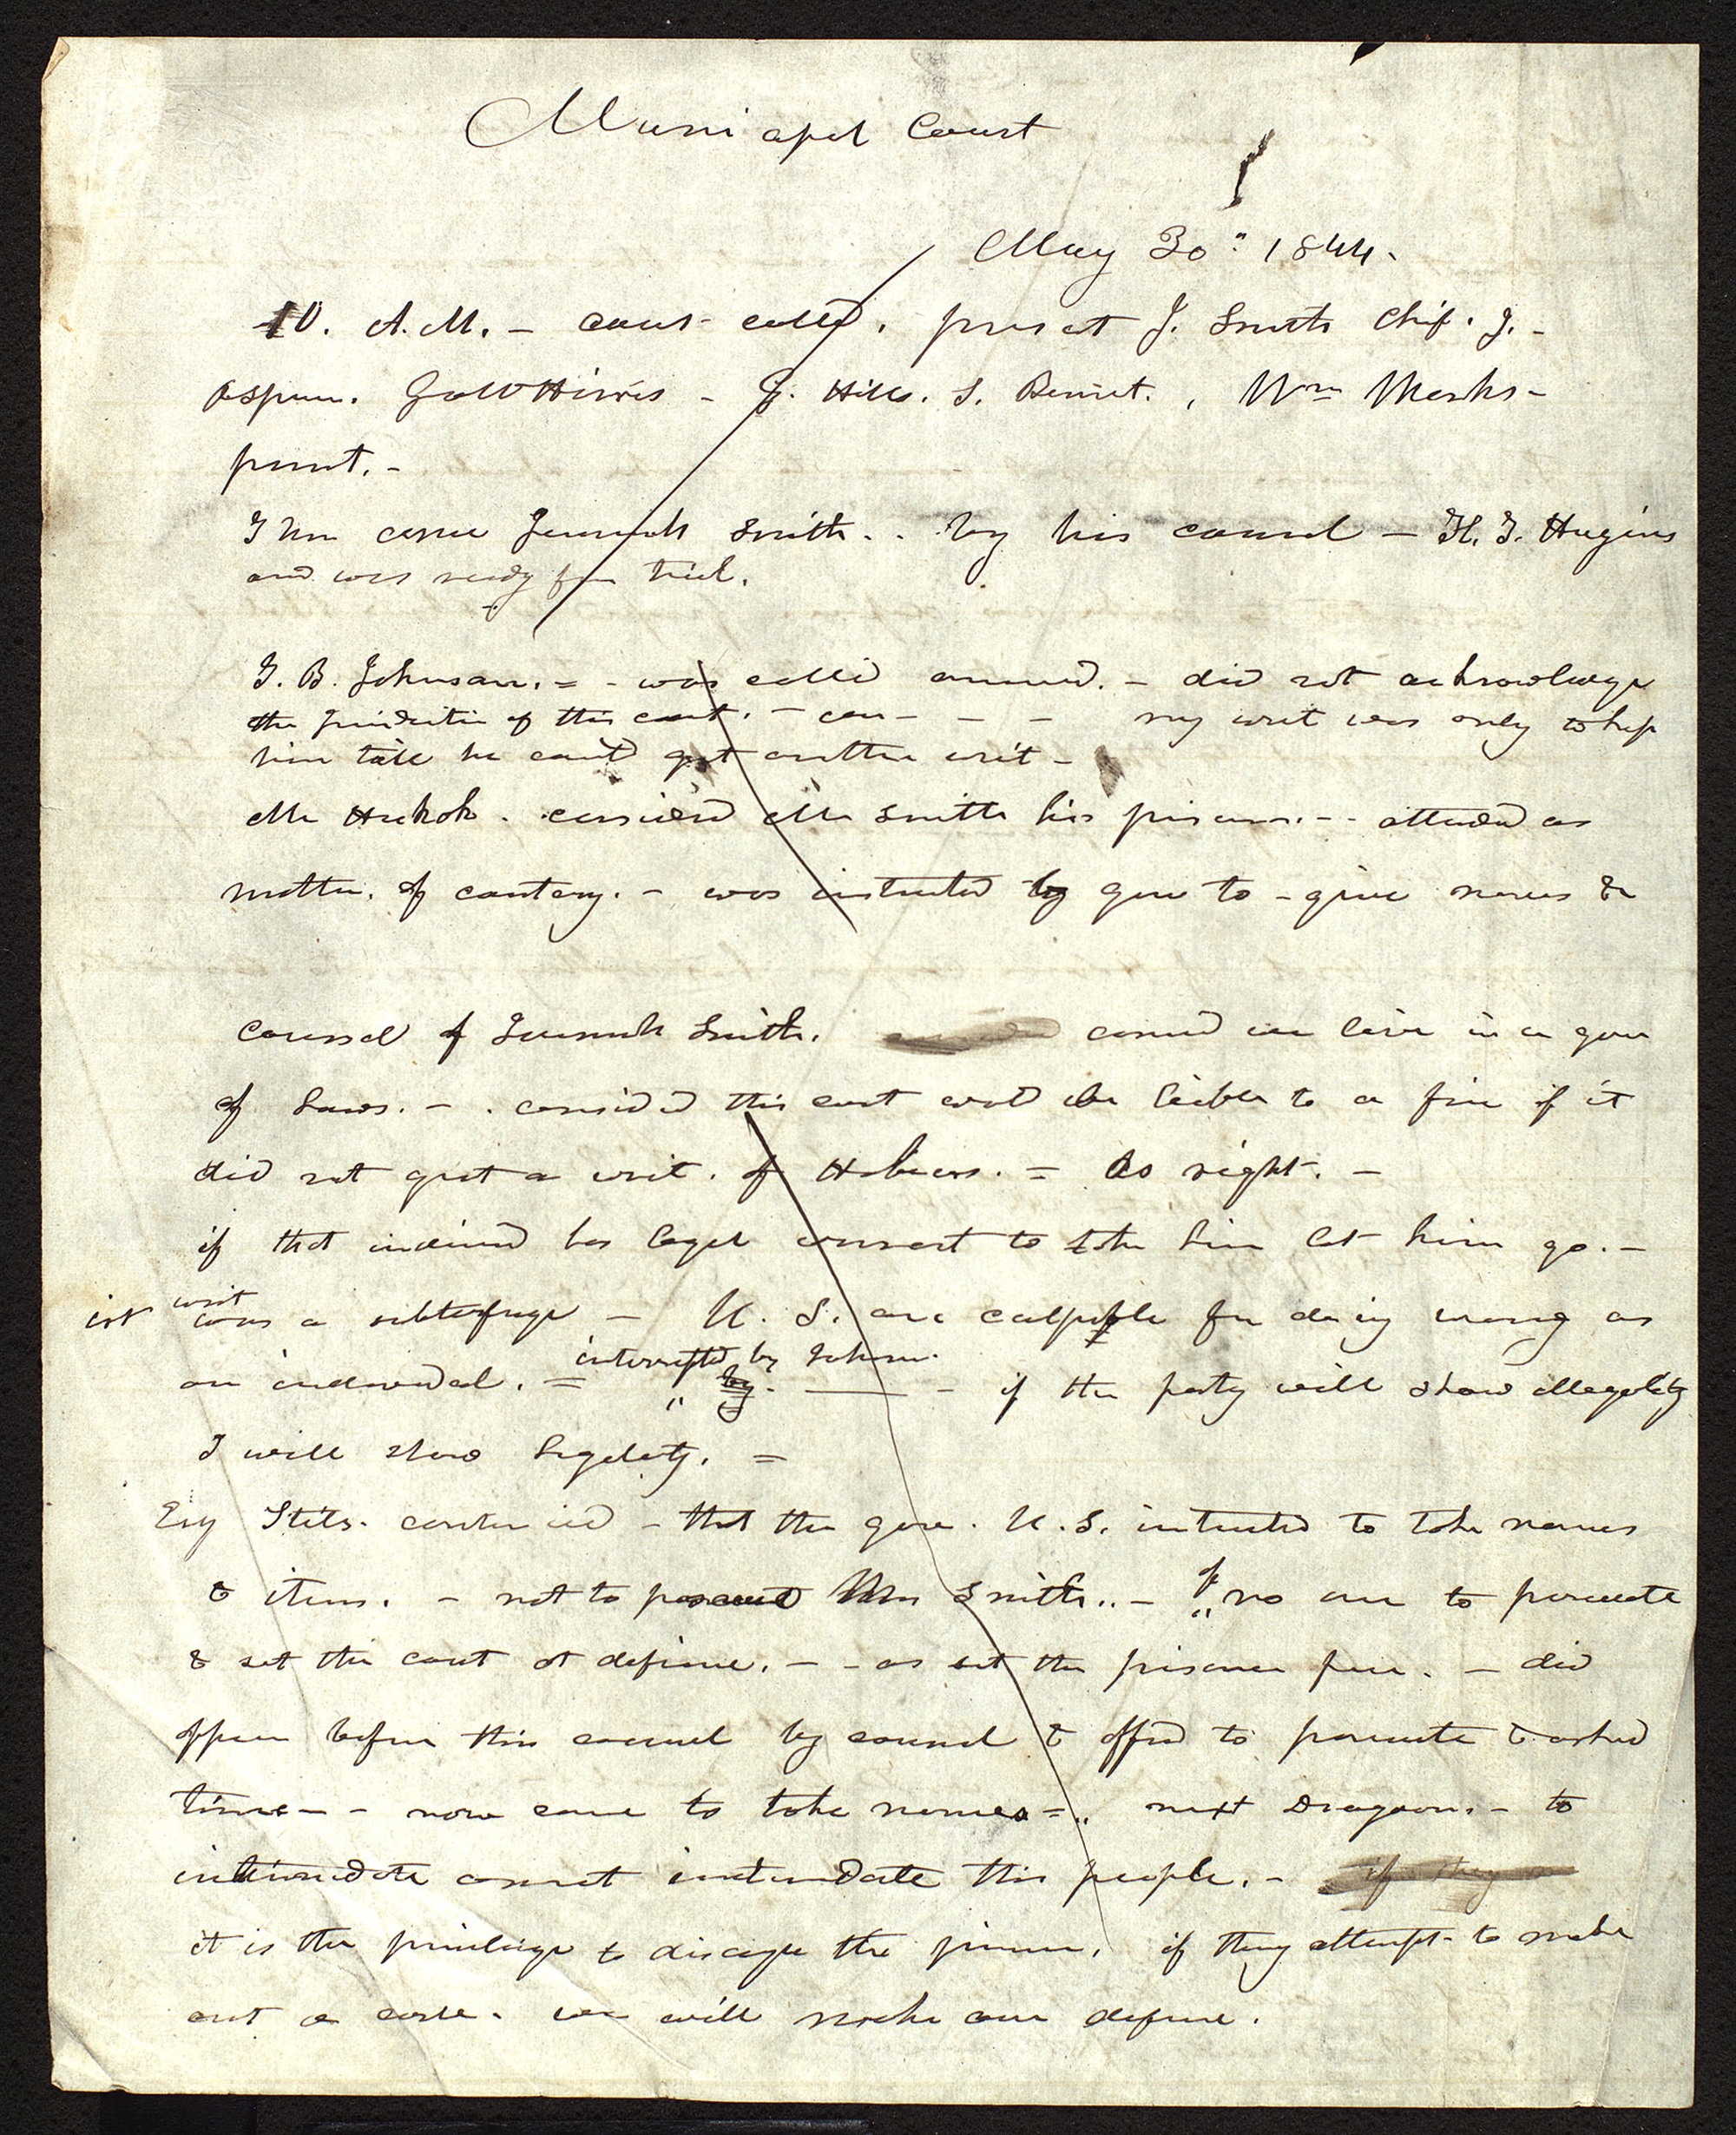 Municipal Court
May 30" 1844.
10. A.M. — court called. present J. Smith Chif. J. —
Geo W Harris — G. Hills. S. Bennet. , Wm Marks —
present. —
Then came Jeremiah Smith.. by his counsel — H. T. Hugins
and was ready for trial.
T. B. Johnson. = - was called answerd. — did not acknowledge
the Juridictin of this court. — can — — — my writ was only to keep
him till he could get another writ —
Mr Hickok. considerd Mr Smith his prisoner. -- attended as
matter. of courtesy. — was instructed by gov to - give names &
Counsel of Jeremiah Smith. considd we live in a gov
of Laws. — . considerd this court would be liable to a fine if it
did not grant a writ. of Habeus. = do right. —
if that individ has legal warrant to take him let him go. —
1st writ was a subterfuge — U. S. are culpable for doing wrong as
interrupted by Johnson.
an individual. = " by. —— — if the party will show illegality
I will show legality. =
Esq Stiles. contended — that the gov. U.S. instructed to take names
& items. — not to prosecute Mr Smith.. — " if no one to prosecute
& set this court at defiance. — - as set the prisoner free. — did
appear before this council by counsel & offerd to prosecute & asked
time — - now come to take names = " next Dragoons. — to
intimidate cannot intimidate this people. — if they
it is the privilege to discharge the prisoner. if they attempt to make
out a case. we will make our defence.